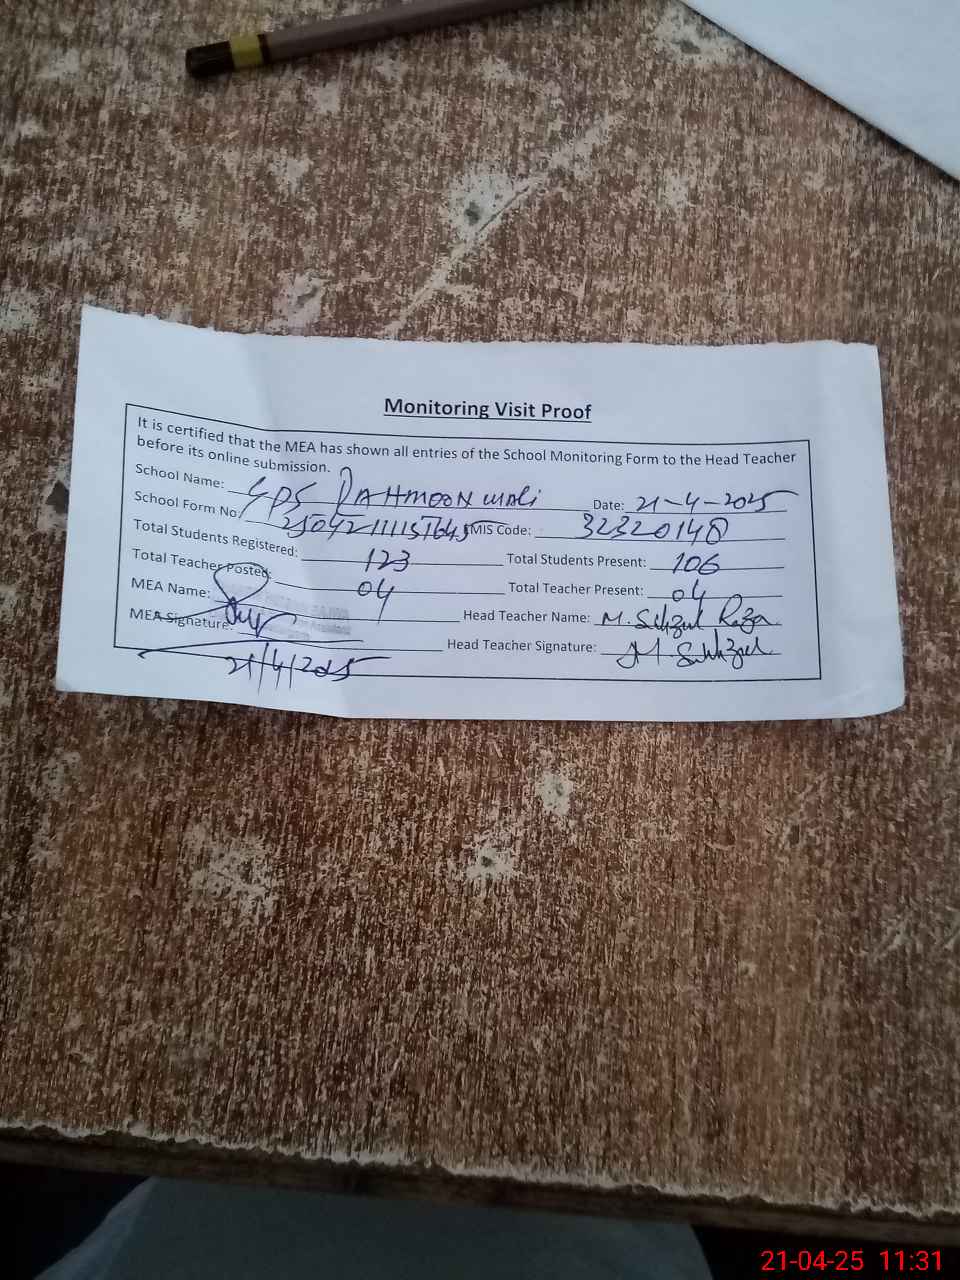 Monitoring Visit Proof
It is certified that the MEA has shown all entries of the School Monitoring Form to the Head Teacher
before its online submission.
School Name: GPS RAHMOON WALI Date: 21-4-2025
School Form No: MIS Code: 32320148
Total Students Registered: 123 Total Students Present: 106
Total Teacher Posted: 04 Total Teacher Present: 04
MEA Name: Head Teacher Name: M. Raza
MEA Signature: Head Teacher Signature: M.
21/4/2025
21-04-25 11:31